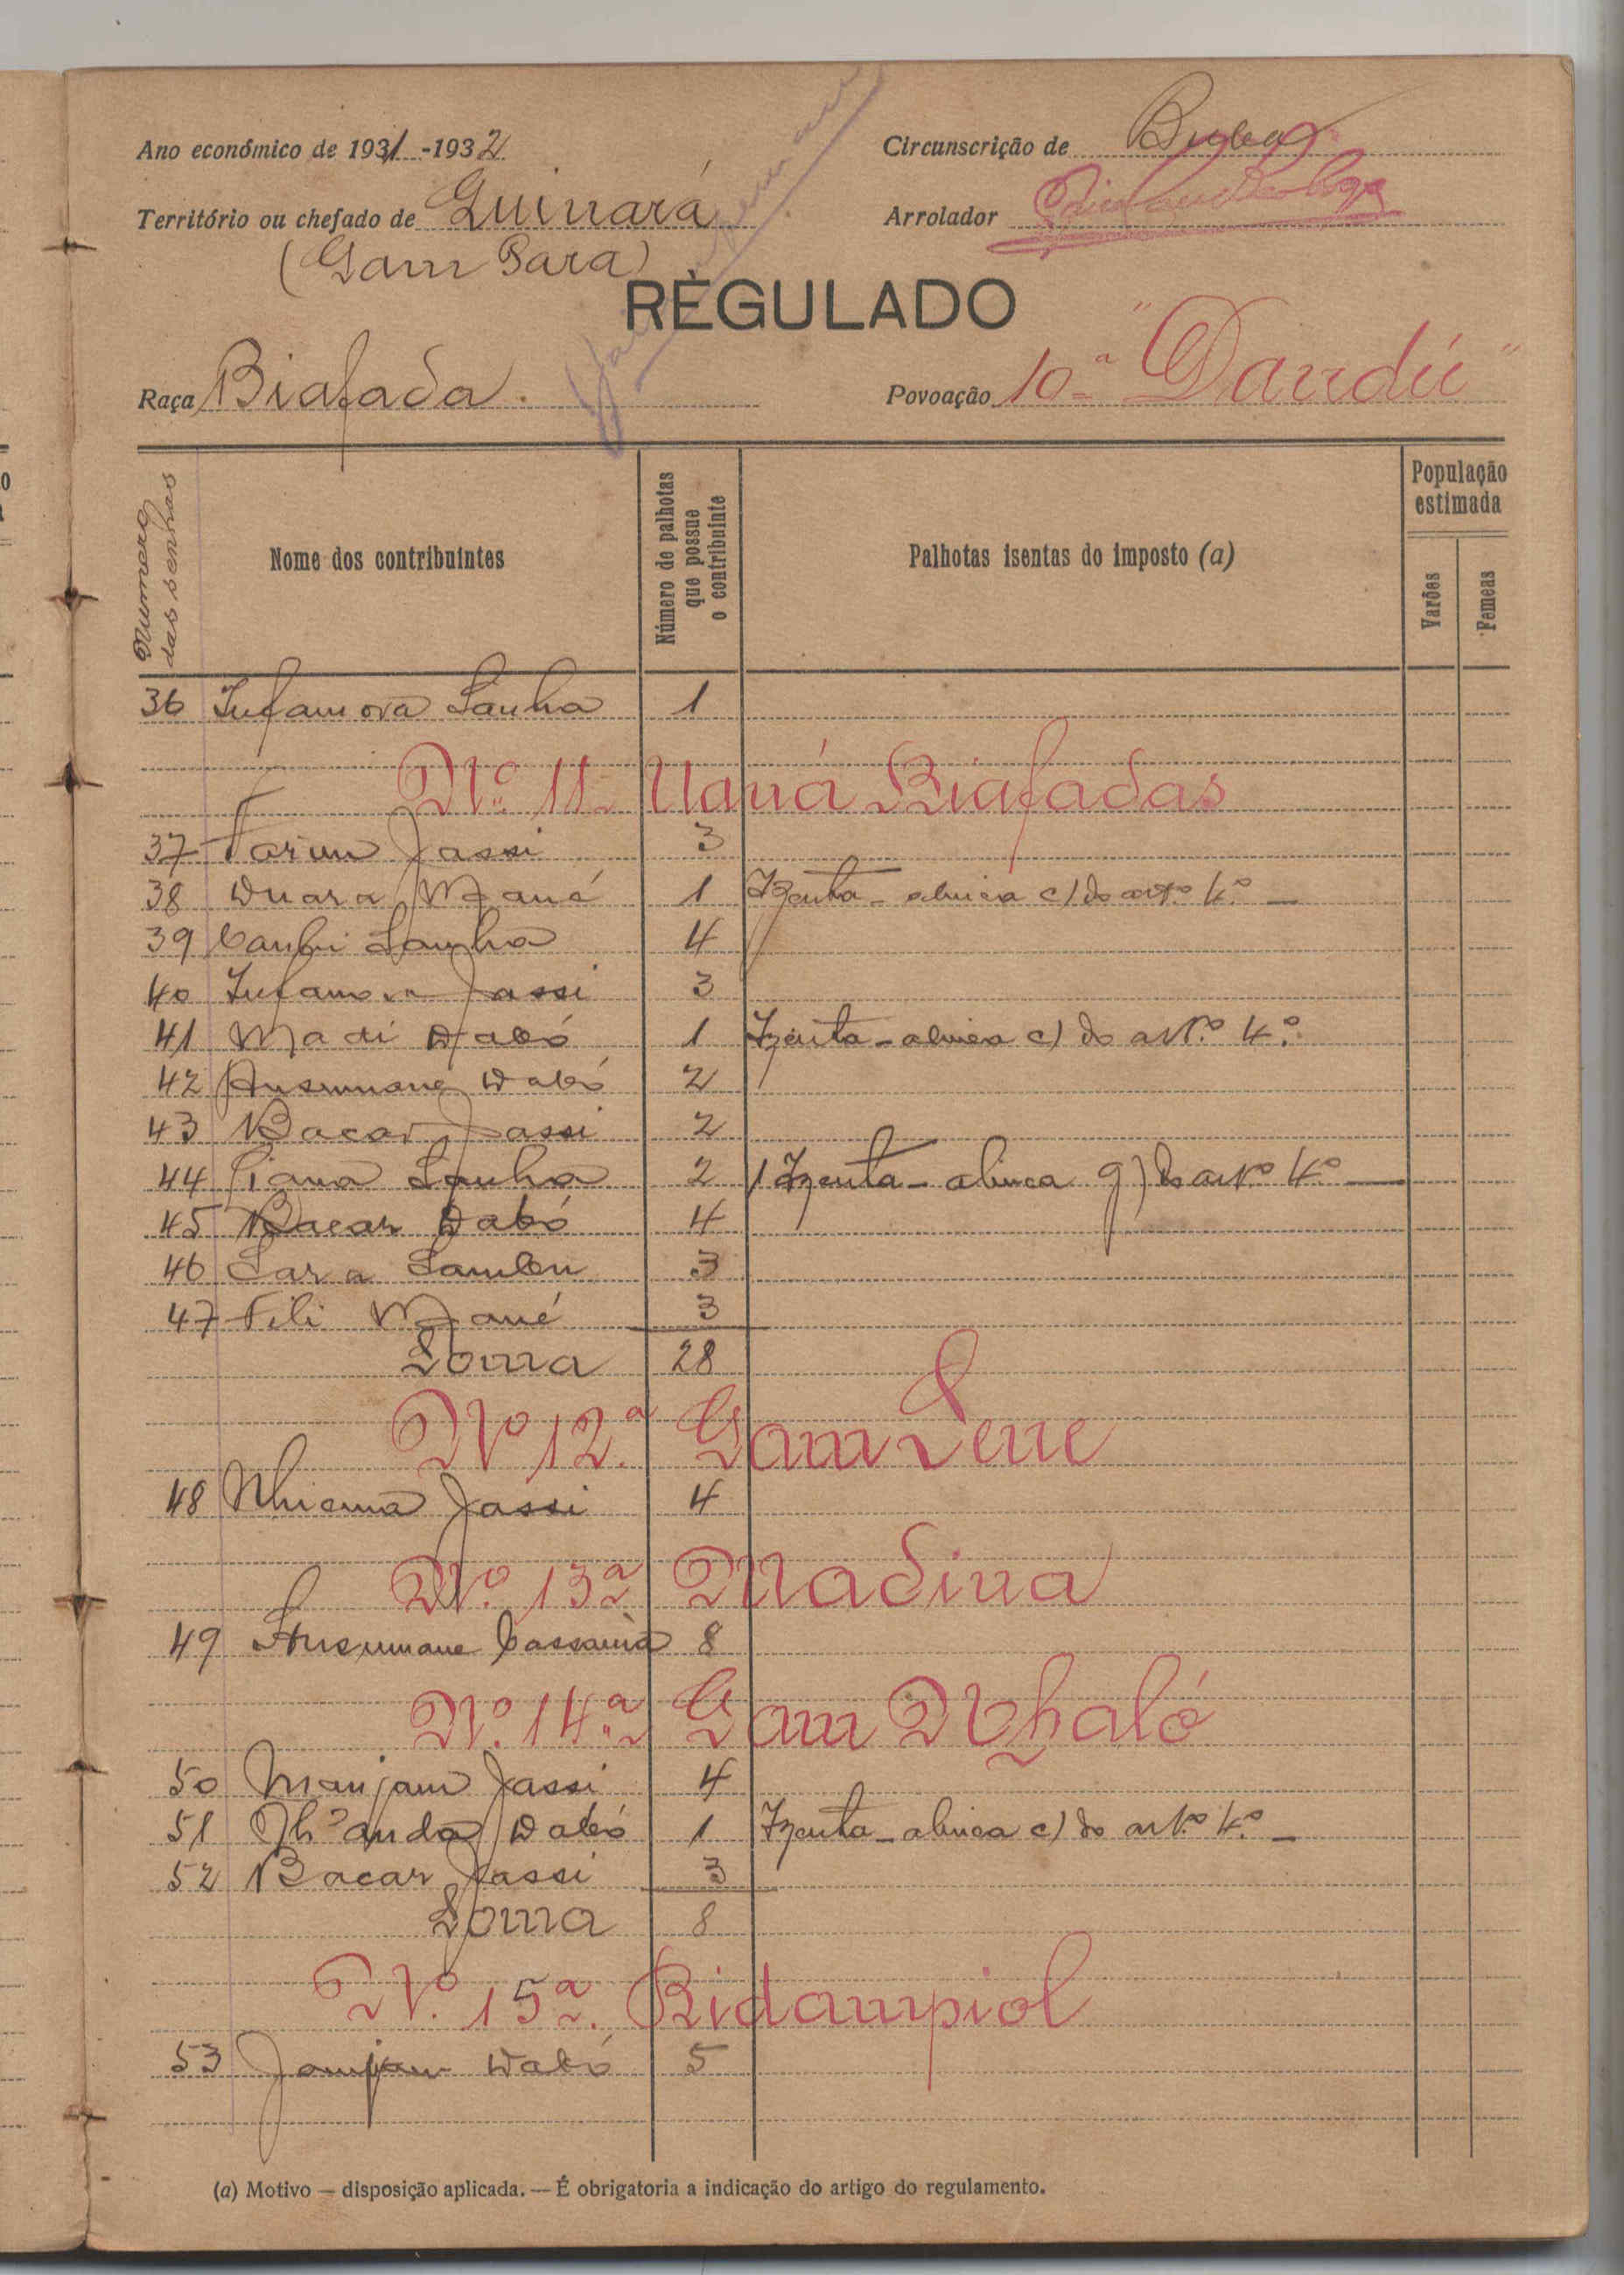 Ano económico de 1931-1932
Circunscrição de Buba
Território ou chefado de Guinará
Arrolador
(Gam Para)
REGULADO
Raça Biafada.
Povoação 10ª "Dandú"
Numero das senhas
Nome dos contribuintes
Número de palhotas que possue o contribuinte
Palhotas isentas do imposto (a)
População estimada
Varões
Femeas
36 Infamora Sanha 1
Nº 11. Uaná Biafadas
37 Jassi 3
38 Duara Mané 1 Izenta - alinea c) do artº 4º —
39 Sanha 4
40 Infamora Jassi 3
41 Madi Dabó 1 Izenta - alinea c) do art.º 4.º
42 Ansumane Dabó 2
43 Bacar Jassi 2
44 Sanha 2 1 Izenta - alinea g) do artº 4º —
45 Bacar Dabó 4
46 Sara Sambu 3
47 Fili Mané 3
Soma 28
Nº 12.ª Gam Sene
48 Jassi 4
Nº 13ª Madina
49 Ansumane Cassamá 8
Nº 14.ª Gam Nhaló
50 Manjam Jassi 4
51 Dabó 1 Izenta - alinea c) do artº 4.º —
52 Bacar Jassi 3
Soma 8
Nº 15ª. Bidampiol
53 Jamjam Dabó 5
(a) Motivo — disposição aplicada. — É obrigatoria a indicação do artigo do regulamento.